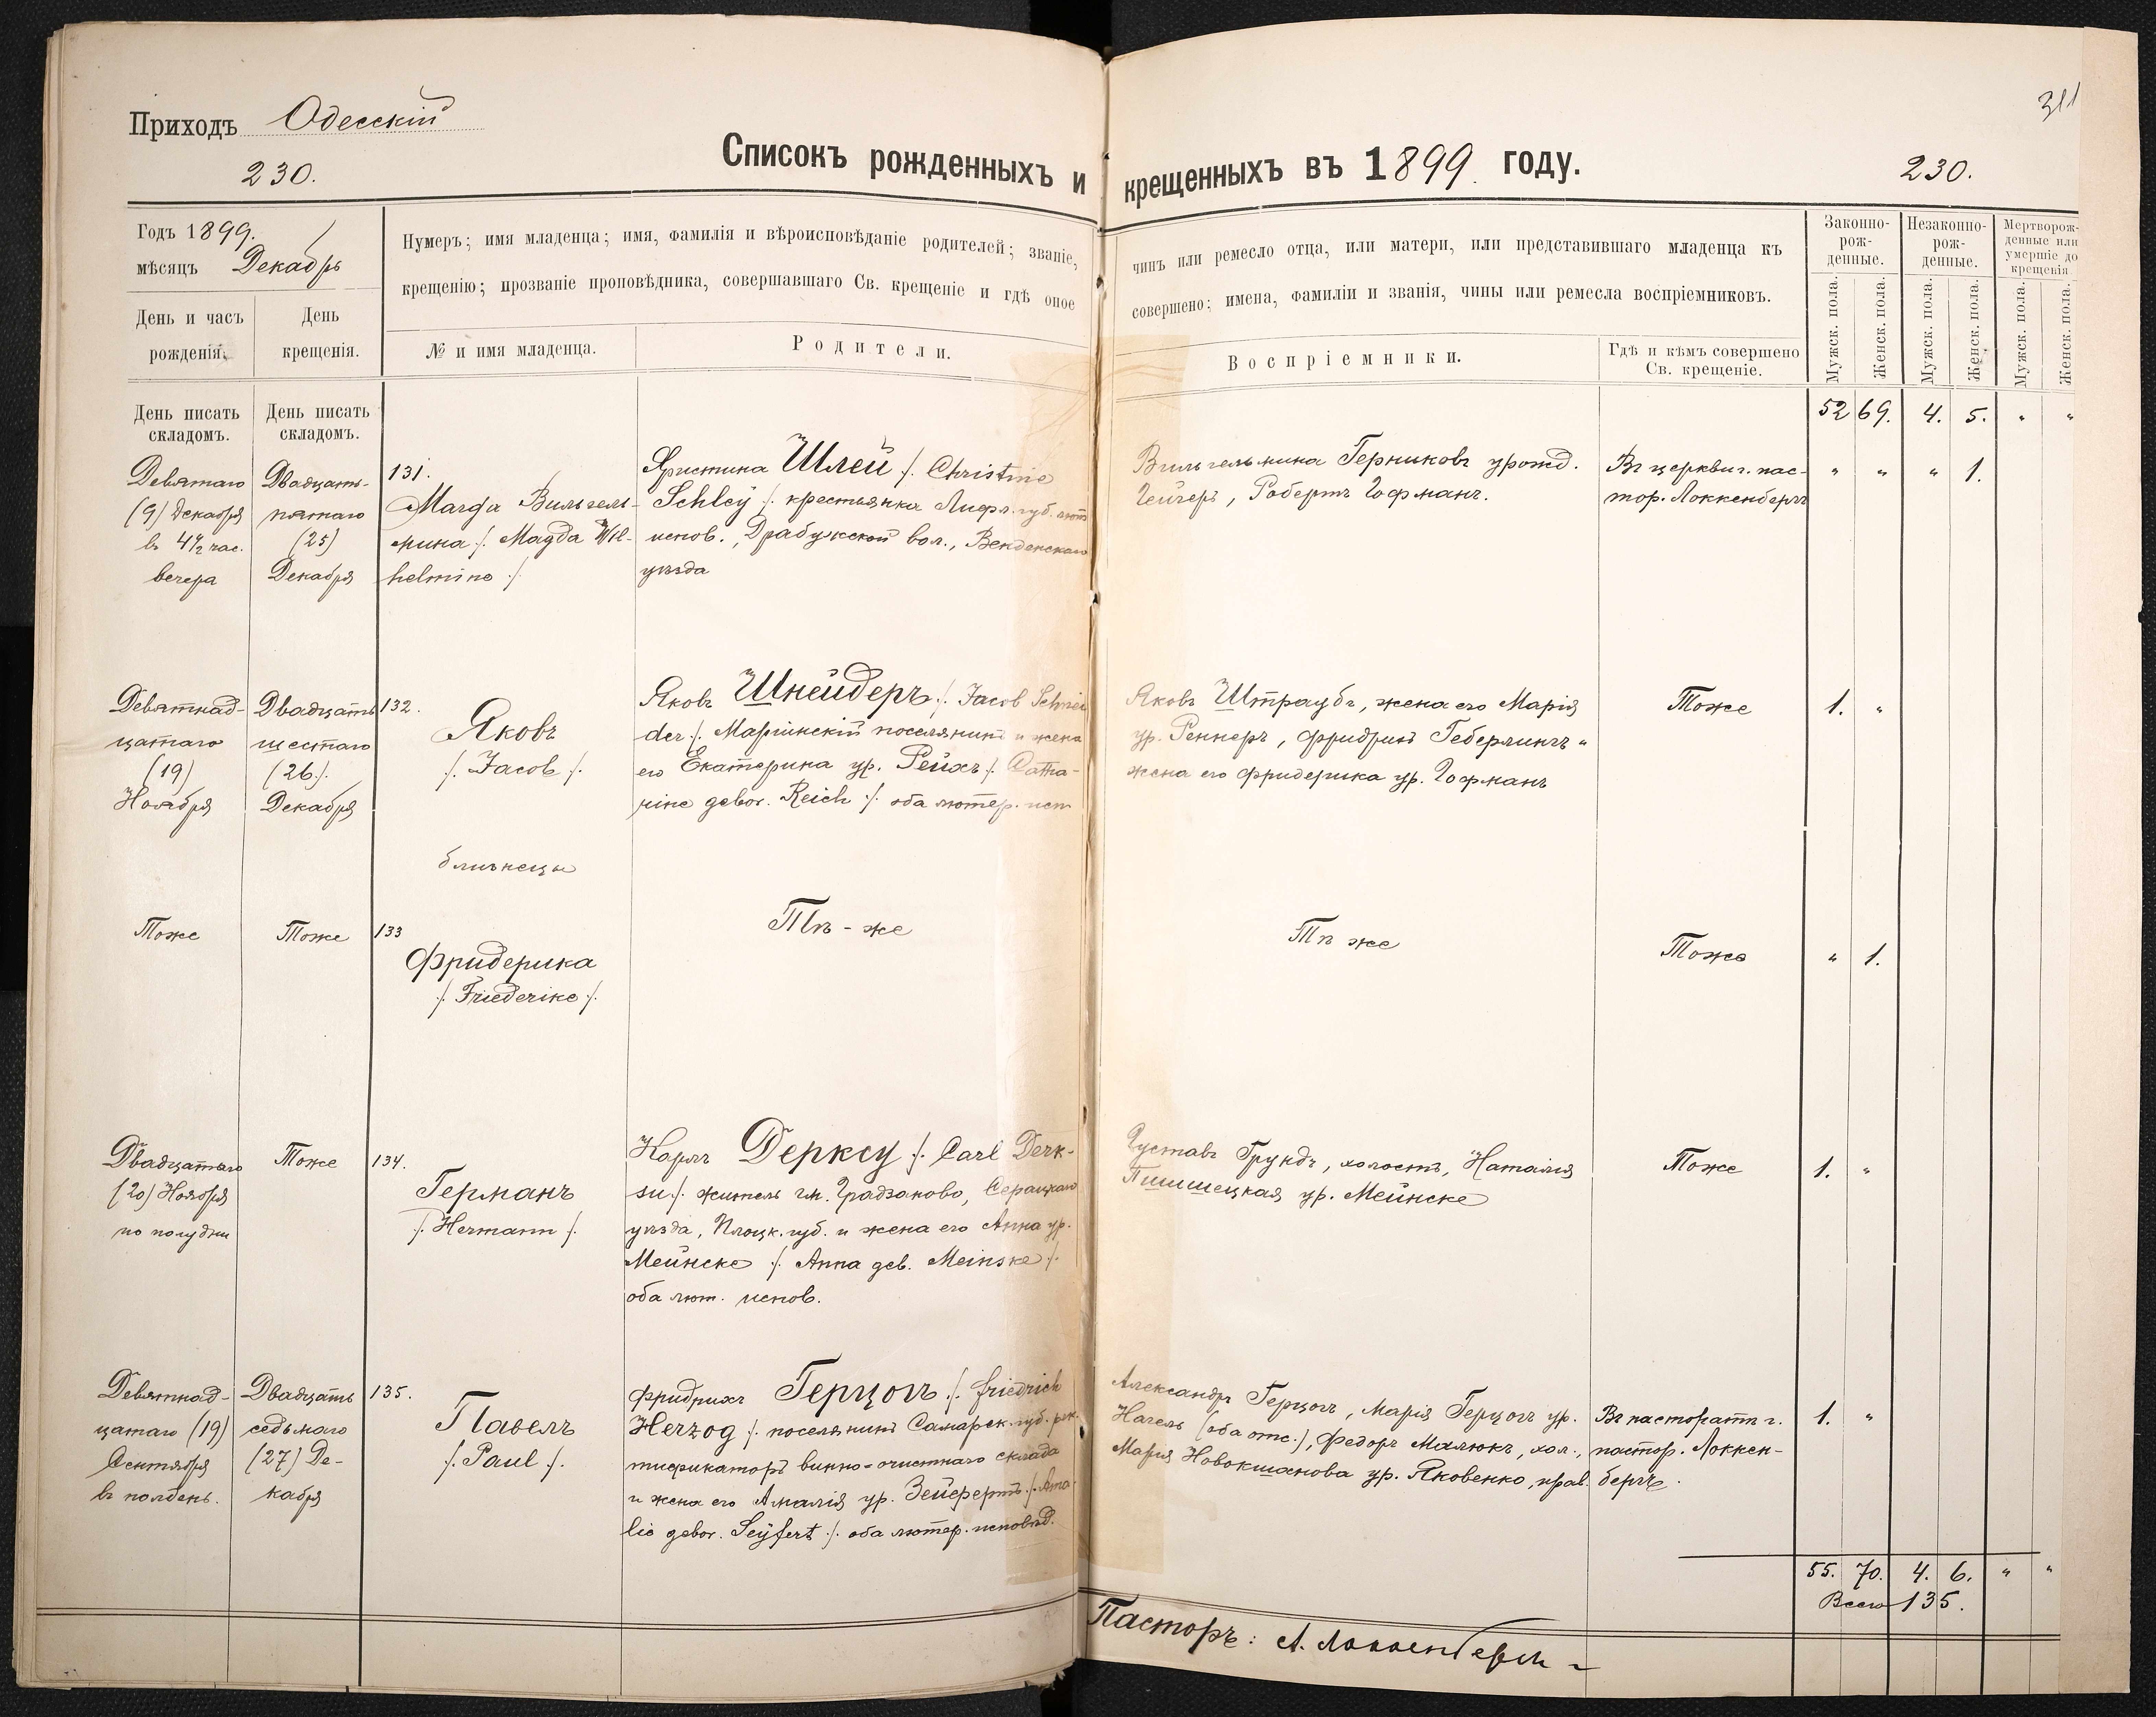 Приходъ Одесскій
230.
Списокъ рожденныхъ и крещенныхъ въ 1899. году.
230.
311
Годъ 1899.
мѣсяцъ Декабрь
День и часъ рожденія.
День крещенія.
Нумеръ; имя младенца; имя, фамилія и вѣроисповѣданіе родителей; званіе, чинъ или ремесло отца, или матери, или представившаго младенца къ
крещенію; прозваніе проповѣдника, совершавшаго Св. крещеніе и гдѣ оное совершено; имена, фамиліи и званія, чины или ремесла воспріемниковъ.
№ и имя младенца.
Родители.
Воспріемники.
Гдѣ и кѣмъ совершено
Св. крещеніе.
Законно-
рож-
денные.
Незаконно-
рож-
денные.
Мертворож-
денные или
умершіе до
крещенія.
Мужск. пола.
Женск. пола.
Мужск. пола.
Женск. пола.
Мужск. пола.
Женск. пола.
День писать
складомъ.
День писать
складомъ.
52 69. 4. 5. " "
Девятаго
(9) Декабря
въ 4½ час.
вечера
Двадцать-
пятаго
(25)
Декабря
131.
Магда Вильгель-
мина /. Magda Wil-
helmine ./
Христина Шлей /. Christine
Schley ./ крестьянка Лифл. губ. лют
испов., Драбужской вол., Венденскаго
уѣзда
Вильгельмина Герниковъ урожд.
Гейгеръ, Робертъ Гофманъ.
Въ церкви г. пас-
тор. Локкенбергъ
" " " 1.
Девятнад-
цатаго
(19)
Ноября
Двадцать
шестаго
(26).
Декабря
132.
Яковъ
/. Jacob /.
Яковъ Шнейдеръ /. Jacob Schnei
der /. Маріинскій поселянинъ и жена
его Екатерина ур. Рейхъ /. Catha-
rine gebor. Reich ./ оба лютер. исп
Яковъ Штраубъ, жена его Марія
ур. Реннеръ, Фридрихъ Геберлингъ "
жена его Фридерика ур. Гофманъ
Тоже
1. "
близнецы
Тоже
Тоже
133
Фридерика
/. Friederike /.
Тѣ-же
Тѣ же
Тоже
" 1.
Двадцатаго
(20) Ноября
по полудни
Тоже
134.
Германъ
/. Hermann /.
Карлъ Дерксу /. Carl Derk-
su /. житель гм. Градзаново, Серпцкаго
уѣзда, Плоцк. губ. и жена его Анна ур.
Мейнске /. Anna geb. Meinske ./
оба лют. испов.
Густавъ Грундъ, холостъ, Наталія
Пишишецкая ур. Мейнске
Тоже
1. "
Девятнад-
цатаго (19)
Сентября
въ полдень.
Двадцать
седьмаго
(27) Де-
кабря
135.
Павелъ
/. Paul /.
Фридрихъ Герцогъ /. Friedrich
Herzog /. поселянинъ Самарск. губ. рек-
тификаторъ винно-очистнаго склада
и жена его Амалія ур. Зейфертъ /. Ama-
lie gebor. Seyfert ./ оба лютер. исповѣд.
Александръ Герцогъ, Марія Герцогъ ур.
Нагель (оба отс.), Федоръ Малюкъ, хол.,
Марія Новокшанова ур. Яковенко, прав.
Въ пасторатѣ г.
пастор. Локкен-
бергъ.
1. "
55. 70. 4. 6. " "
Всего 135.
Пасторъ: А. Локкенбергъ